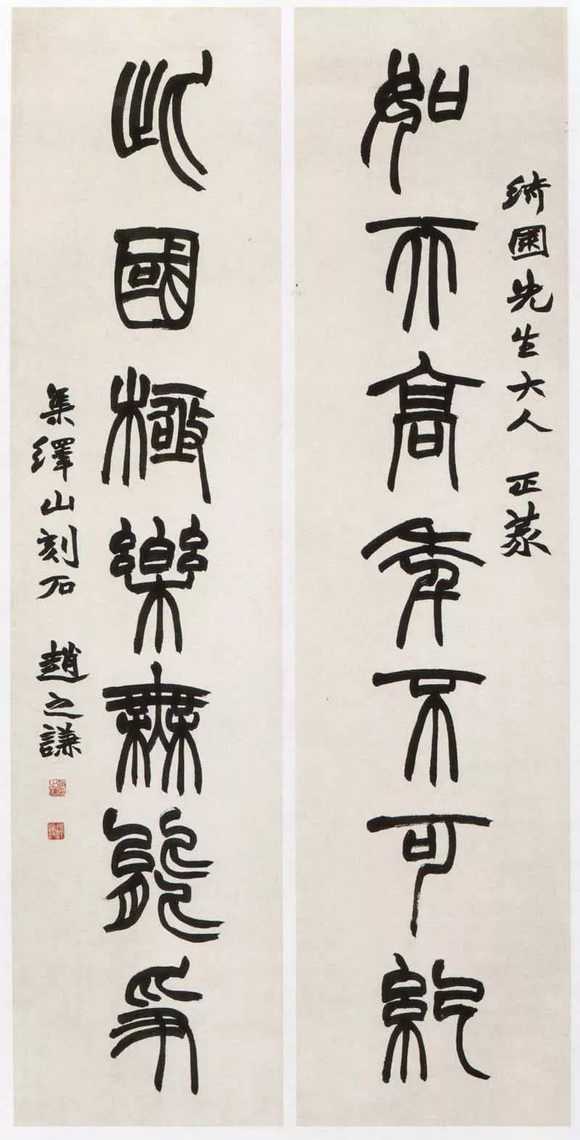 琦園先生大人 正篆
如天高年不可紀
此國極樂無能爲
集繹山刻石 趙之謙